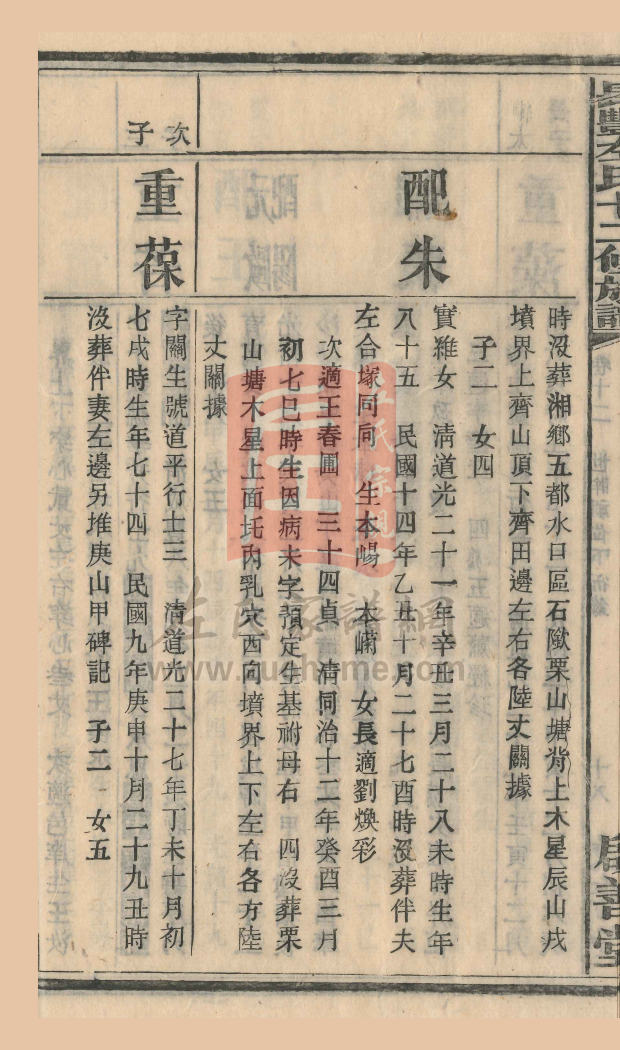 長豐左氏十二修族譜
卷十二
居善堂
時沒葬湘鄉五都水口區石隞栗山塘背上木星辰山戌
墳界上齊山頂下齊田邊左右各陸丈關據
子二 女四
配朱
實維女 清道光二十一年辛丑三月二十八未時生年
八十五 民國十四年乙丑十月二十七酉時沒葬伴夫
左合塚同向 生本崵 本㠛 女長適劉煥彩
次適王春圃 三十四貞 清同治十二年癸酉三月
初七巳時生因病未字預定生基祔母右 四沒葬栗
山塘木星上面圫內乳穴酉向墳界上下左右各方陸
丈關據
次子
重葆
字關生號道平行士三 清道光二十七年丁未十月初
七戌時生年七十四 民國九年庚申十月二十九丑時
沒葬伴妻左邊另堆庚山甲碑記 子二 女五
左氏家譜網
www.zuohome.com
左氏宗親